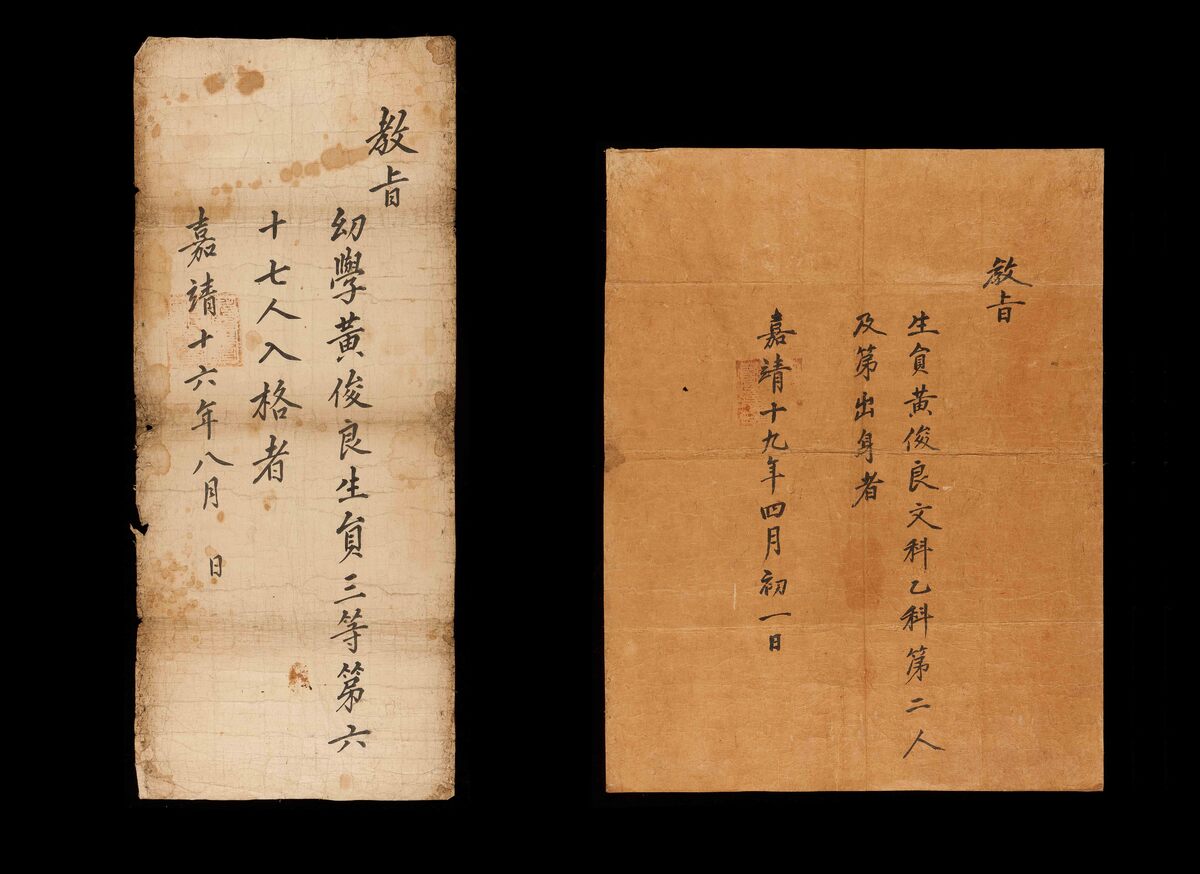 教旨
幼學黃俊良生員三等第六
十七人入格者
嘉靖十六年八月　日
教旨
生員黃俊良文科乙科第二人
及第出身者
嘉靖十九年四月初一日